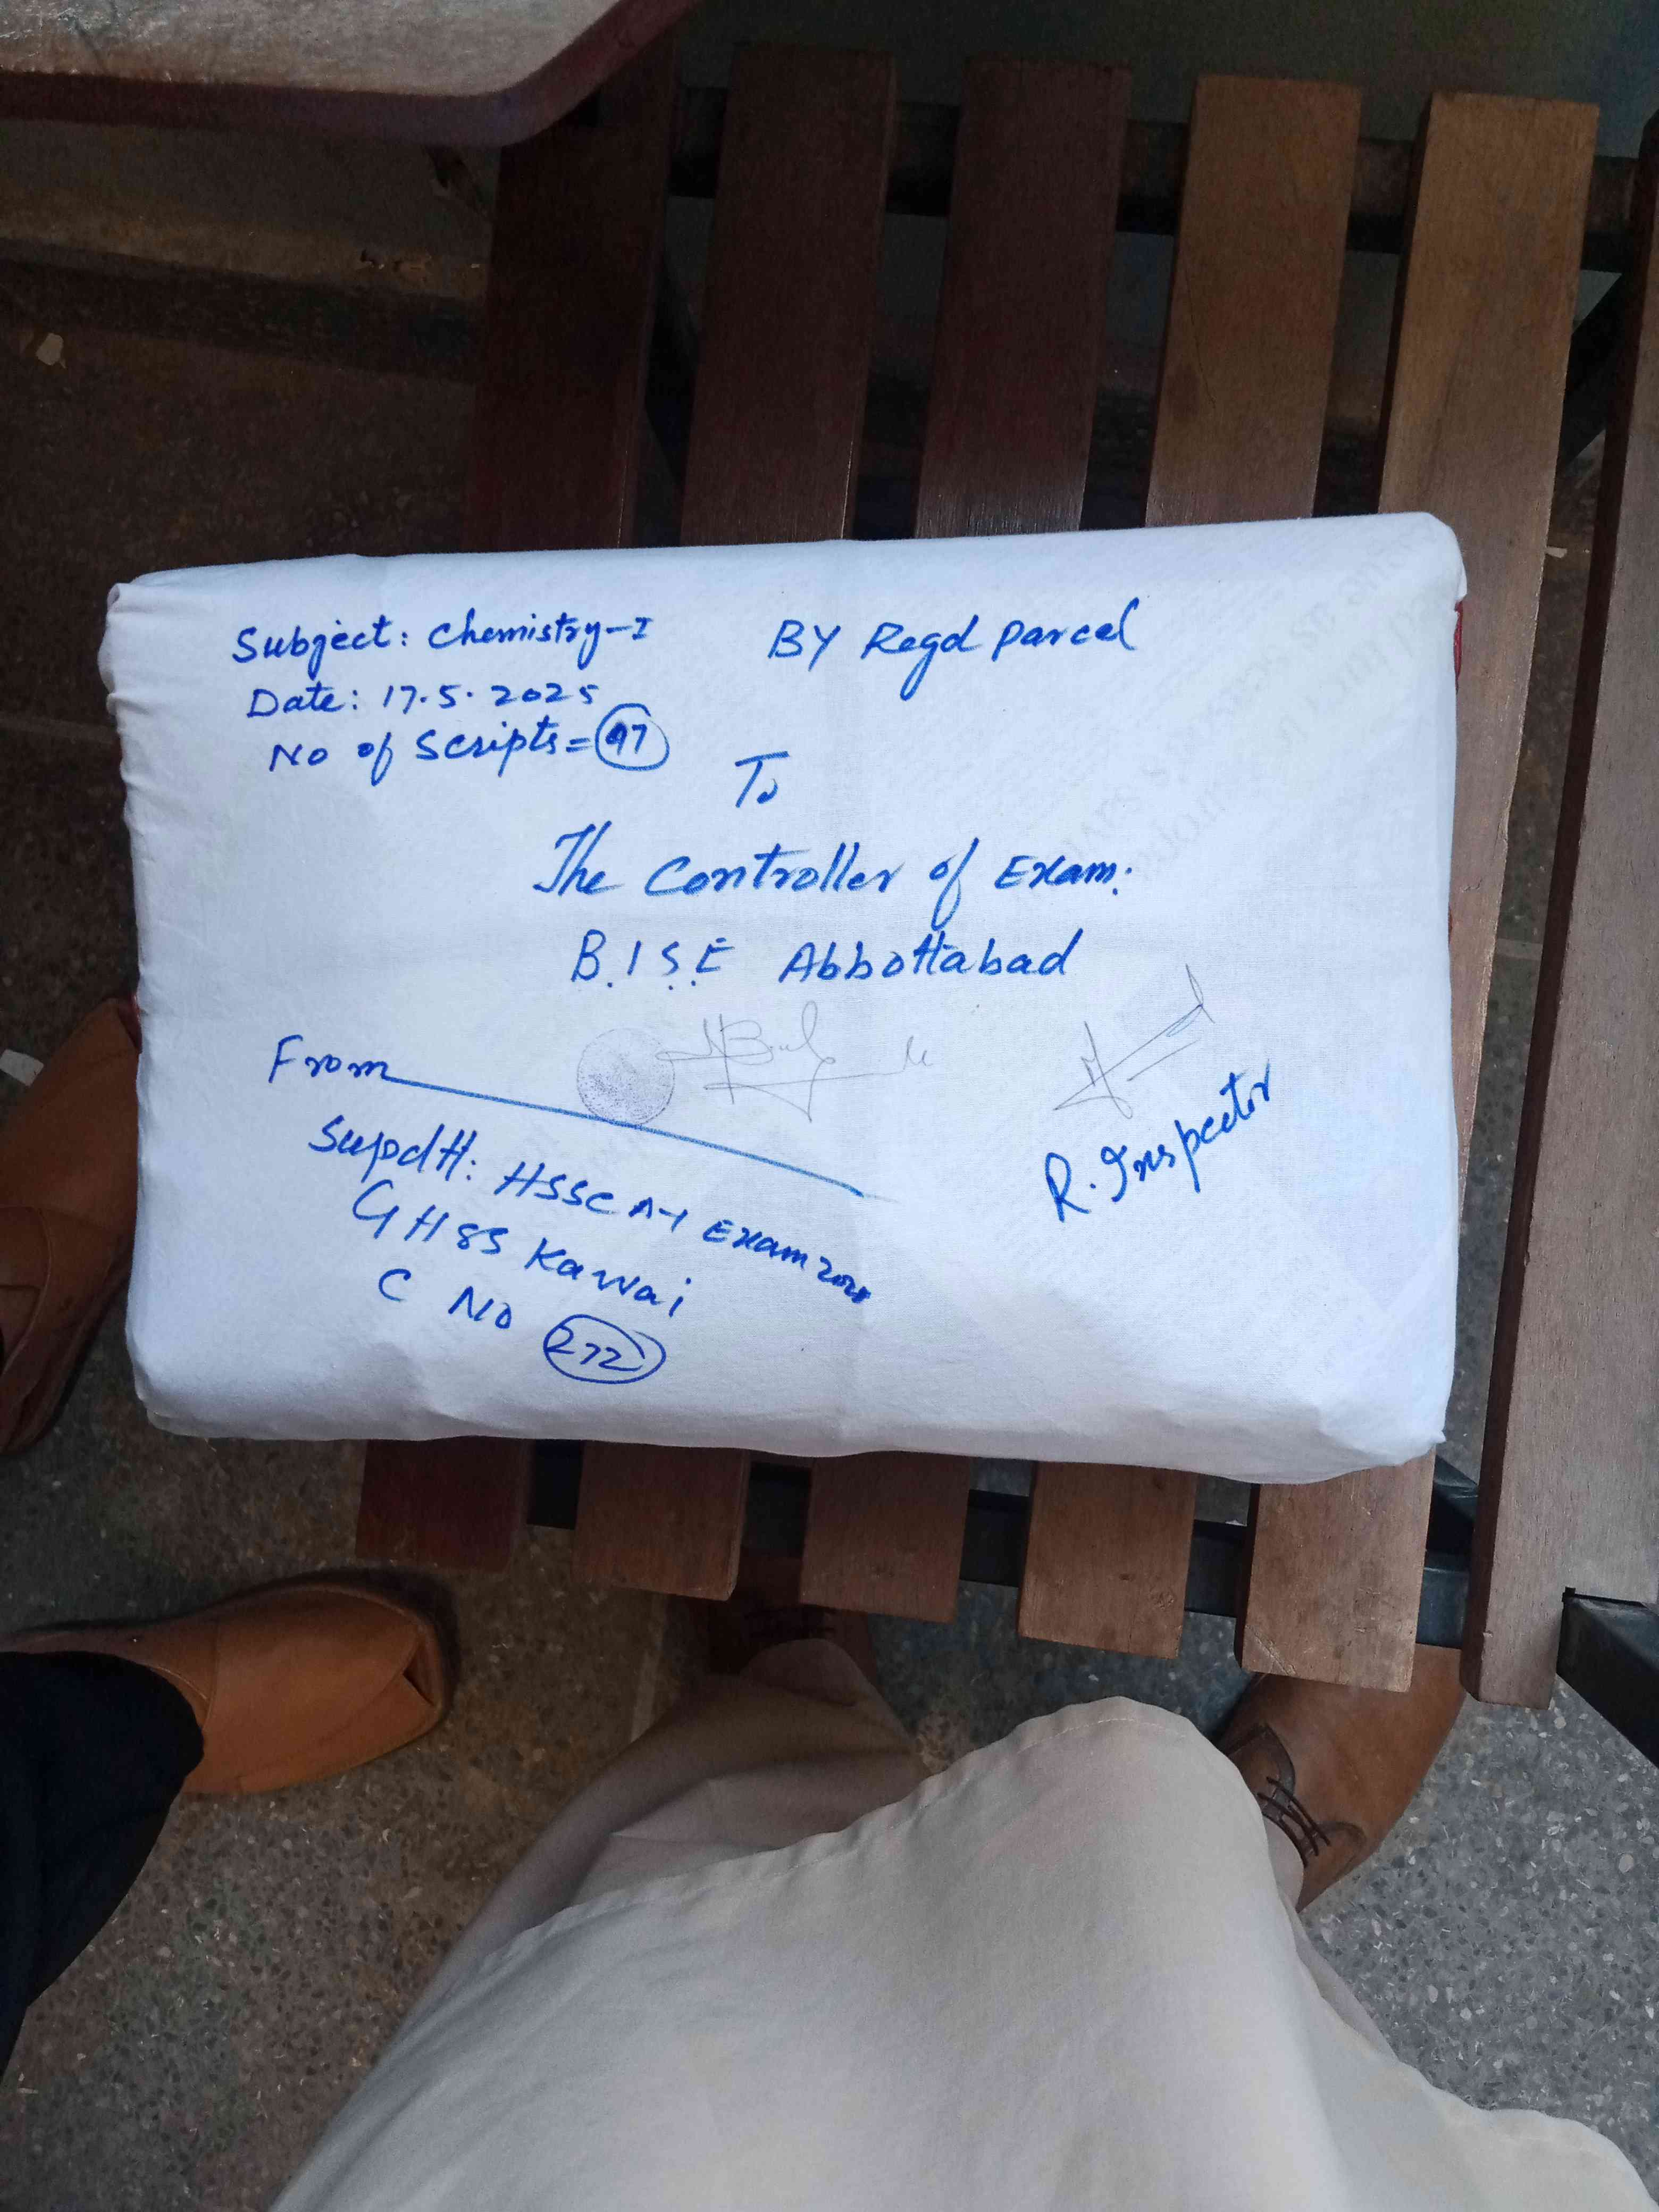 Subject: Chemistry-I
BY Regd parcel
Date: 17.5.2025
No of Scripts = 97
To
The Controller of Exam:
B.I.S.E Abbottabad
From
Supdtt: HSSC A-I Exam
GHSS Kawai
C No 272
R. Inspector